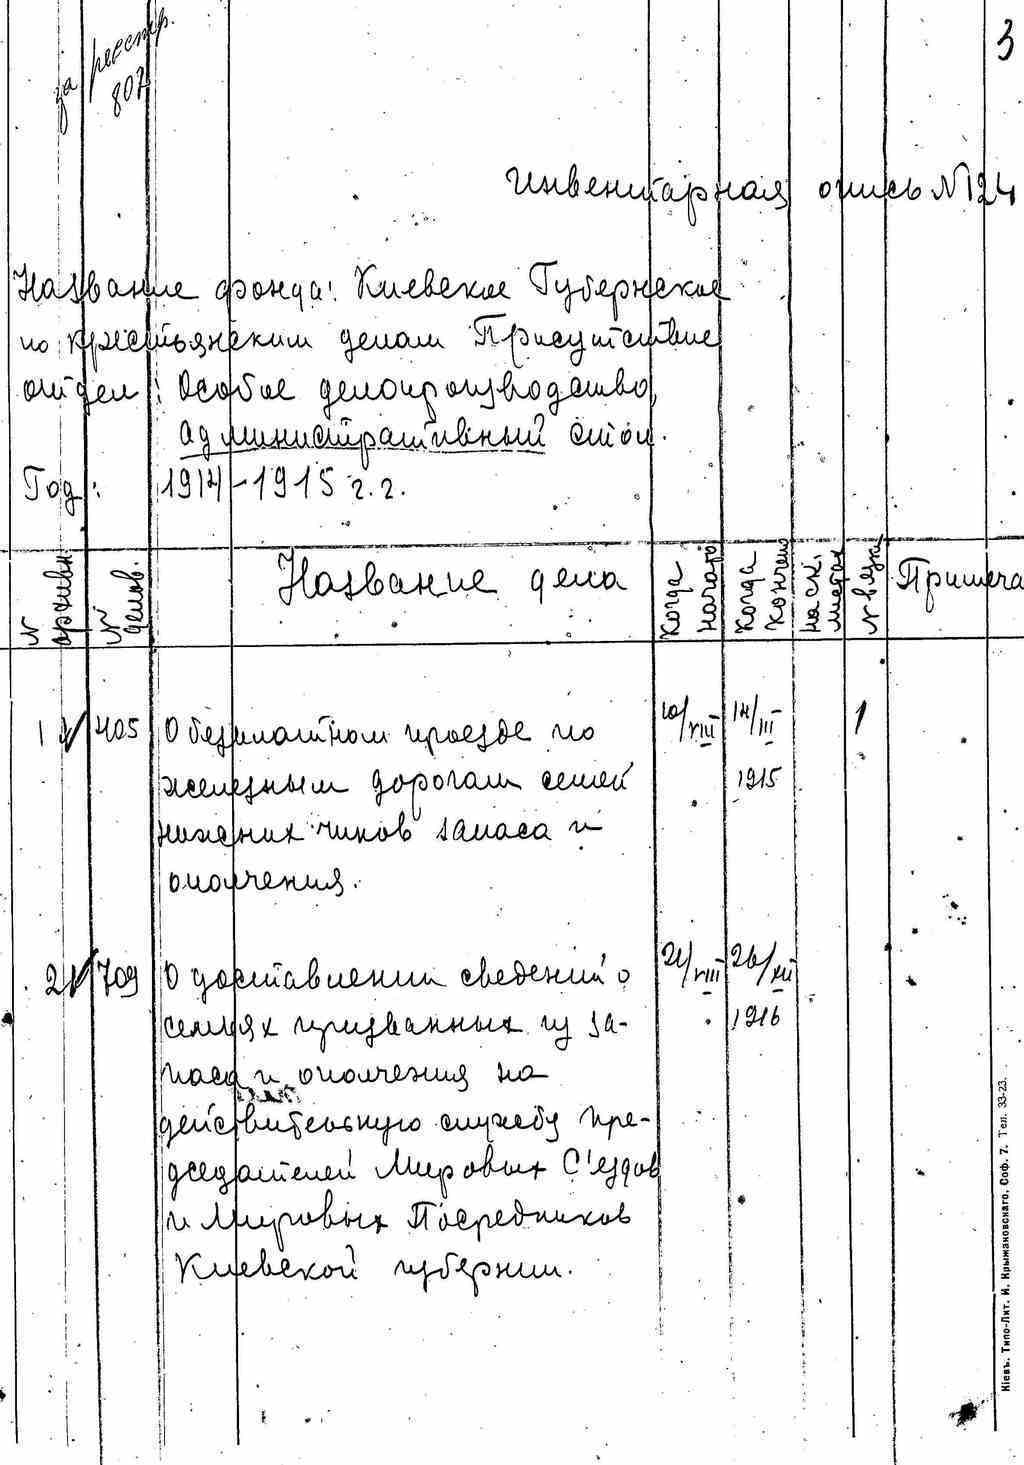 за реестр.
802
3
Инвентарная опись № 24
Название фонда: Киевское Губернское
по крестьянским делам Присутствие
отдел: Особое делопроизводство,
административный стол.
Год: 1914-1915 г.г.
№ архивн.
№ делов.
Название дела
Когда начато
Когда кончено
на ск. листах
№ вязки
Примеча
1 405 О безплатном проезде по 10/VIII 14/III 1
железным дорогам семей 1915
нижених чинов запаса и
ополчения.
2 709 О доставлении сведений о 21/VIII 26/XII
семьях призванных из за- 1916
паса и ополчения на
действительную службу пре-
дседателей Мировых С'ездов
и Мировых Посредников
Киевской губернии.
Кіевъ. Типо-Лит. И. Крыжановскаго. Соф. 7. Тел. 33-23.